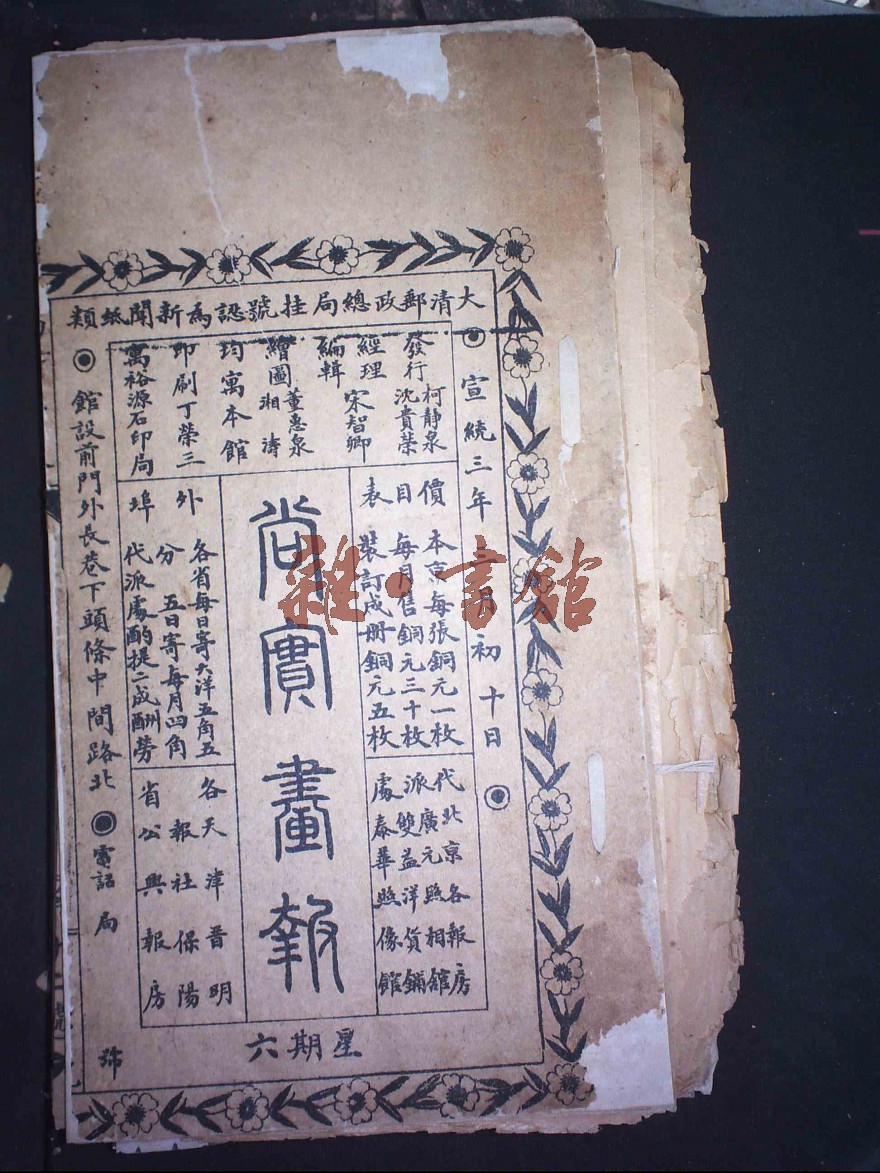 大清郵政總局挂號認為新聞紙類
宣統三年
初十日
發行 柯靜泉
沈貴榮
經理 宋智卿
編輯
繪圖 董惠泉
湘濤
均寓本館
印刷丁榮三
萬裕源石印局
價目表
本京每張銅元一枚
每月售銅元三十枚
裝訂成册銅元五枚
代派處
北京各報房
廣元照相舘
雙益洋貨鋪
泰華照像館
尚實畫報
外埠
各省每日寄大洋五角五
分 五日寄每月四角
代派處酌提二成酬勞
各省
天津晋明
報社保陽
公興報房
館設前門外長巷下頭條中間路北
電話 局 號
星期六
雜·書館